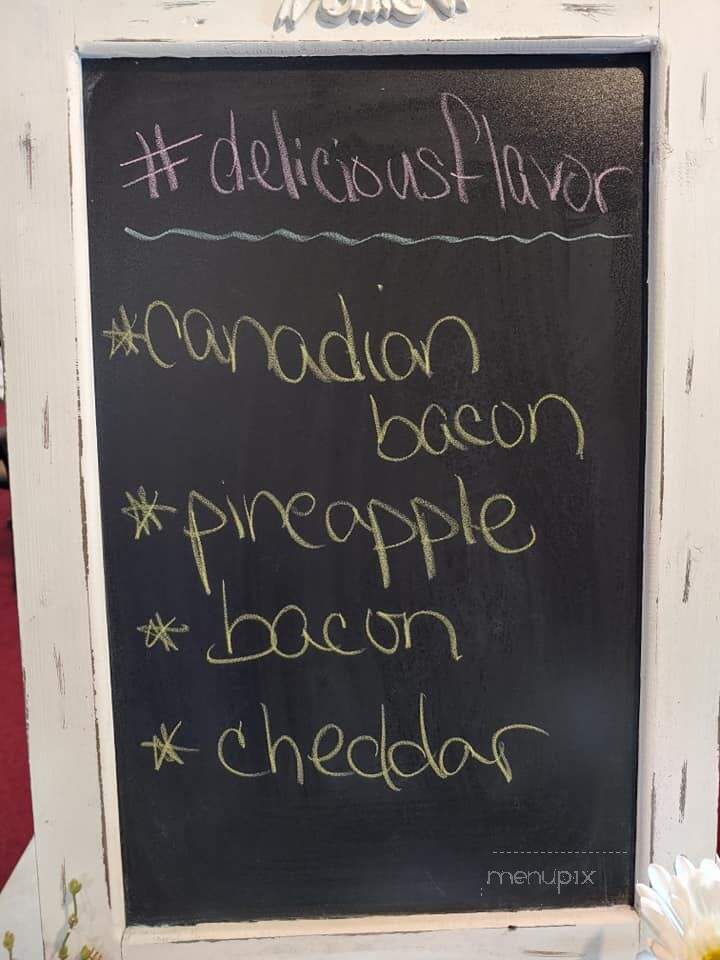 #deliciousflavor
*canadian
bacon
*pineapple
*bacon
*cheddar
menupix